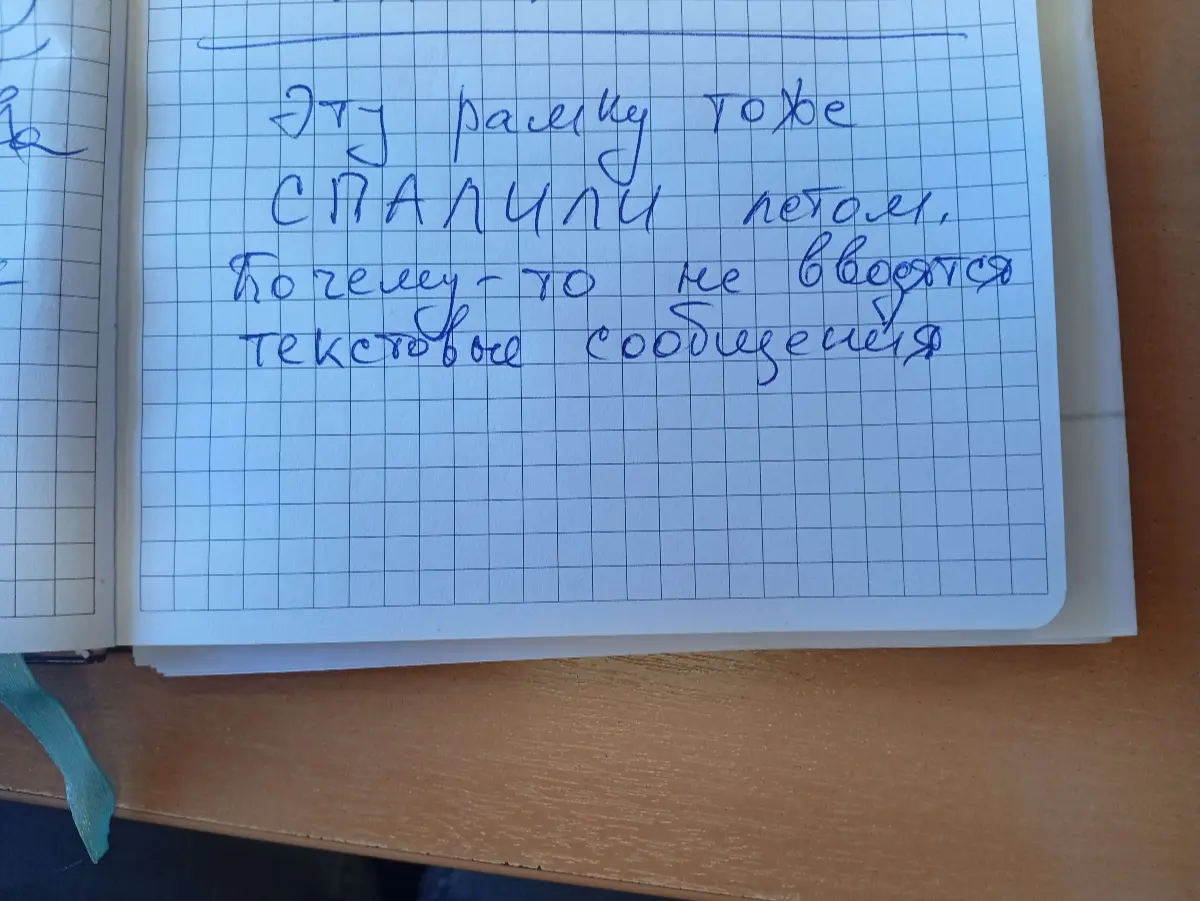 Эту рамку тоже
СПАЛИЛИ летом.
Почему-то не вводятся
текстовые сообщения